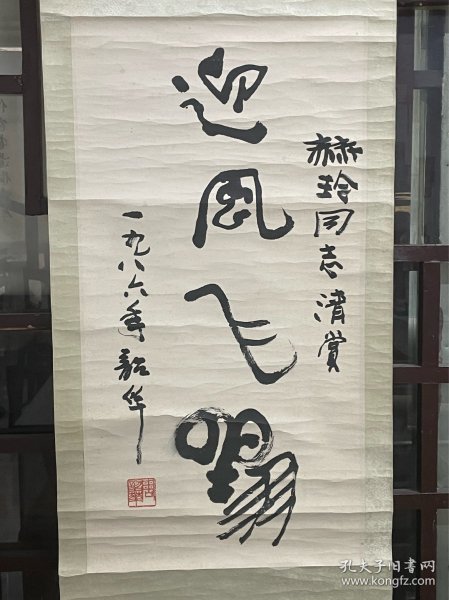 赫玲同志清赏
迎風飞
一九八六年韶华
孔夫子旧书网
www.kongfz.com